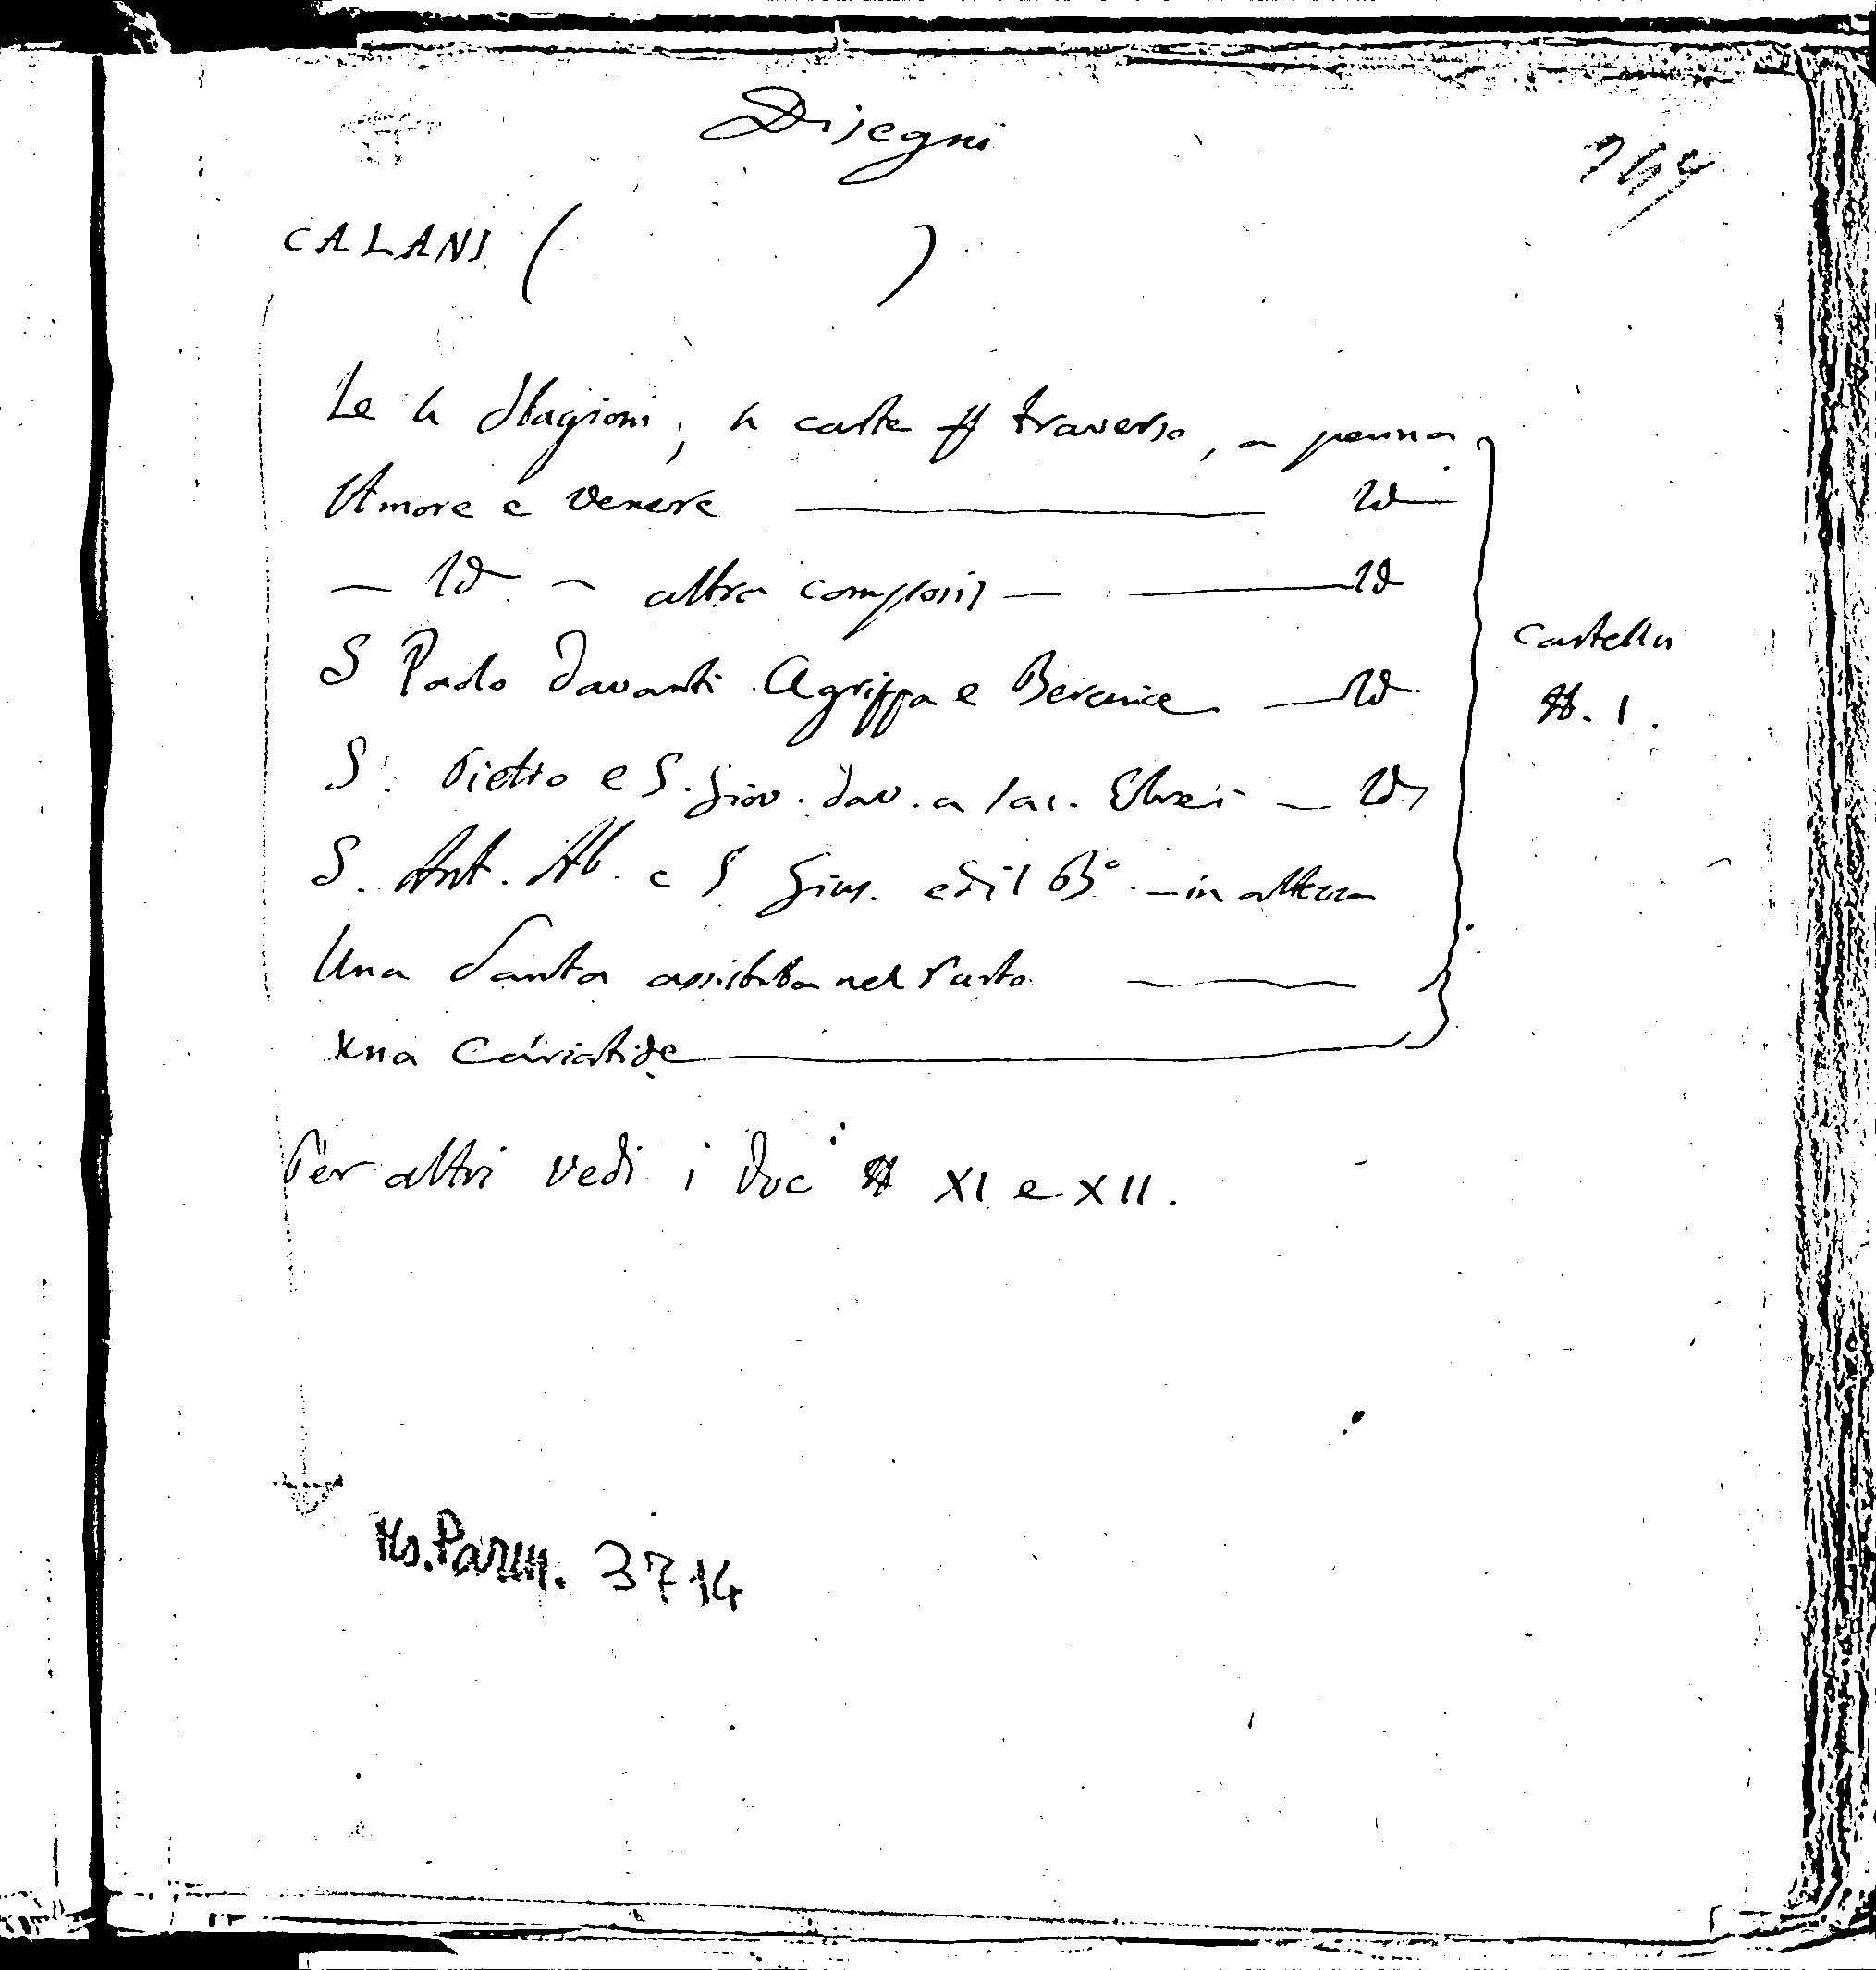 Disegni
CALANI ( )
Le 4 Stagioni, 4 carte p traverso, a penna
Amore e Venere — Id
— Id — altra composiz — Id
S Paolo davanti Agrippa e Berenice — Id
S. Pietro e S. Giov. dav. a sac. Ebrei — Id
S. Ant. Ab. e S Gius. ed il Bº. — in altezza
Una Santa assistita nel Parto —
Una Cariatide —
Cartella
N. 1.
Per altri vedi i Doc N XI e XII.
Ms. Parm. 3714